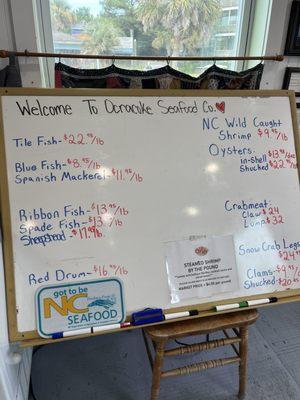 Welcome To Ocracoke Seafood Co.
Tile Fish - $22.95/lb
Blue Fish - $8.95/lb
Spanish Mackerel - $11.95/lb
Ribbon Fish - $13.95/lb
Spade Fish - $13./lb
Sheepshead - $11.95/lb
Red Drum - $16.95/lb
NC Wild Caught
Shrimp $9.95/lb
Oysters:
in-shell $13.95/doz
Shucked $22.95
Crabmeat:
Claw $24
Lump $32
Snow Crab Legs
$24.95
Clams -
Shucked -
STEAMED SHRIMP
BY THE POUND
MARKET PRICE +
got to be
NC
SEAFOOD